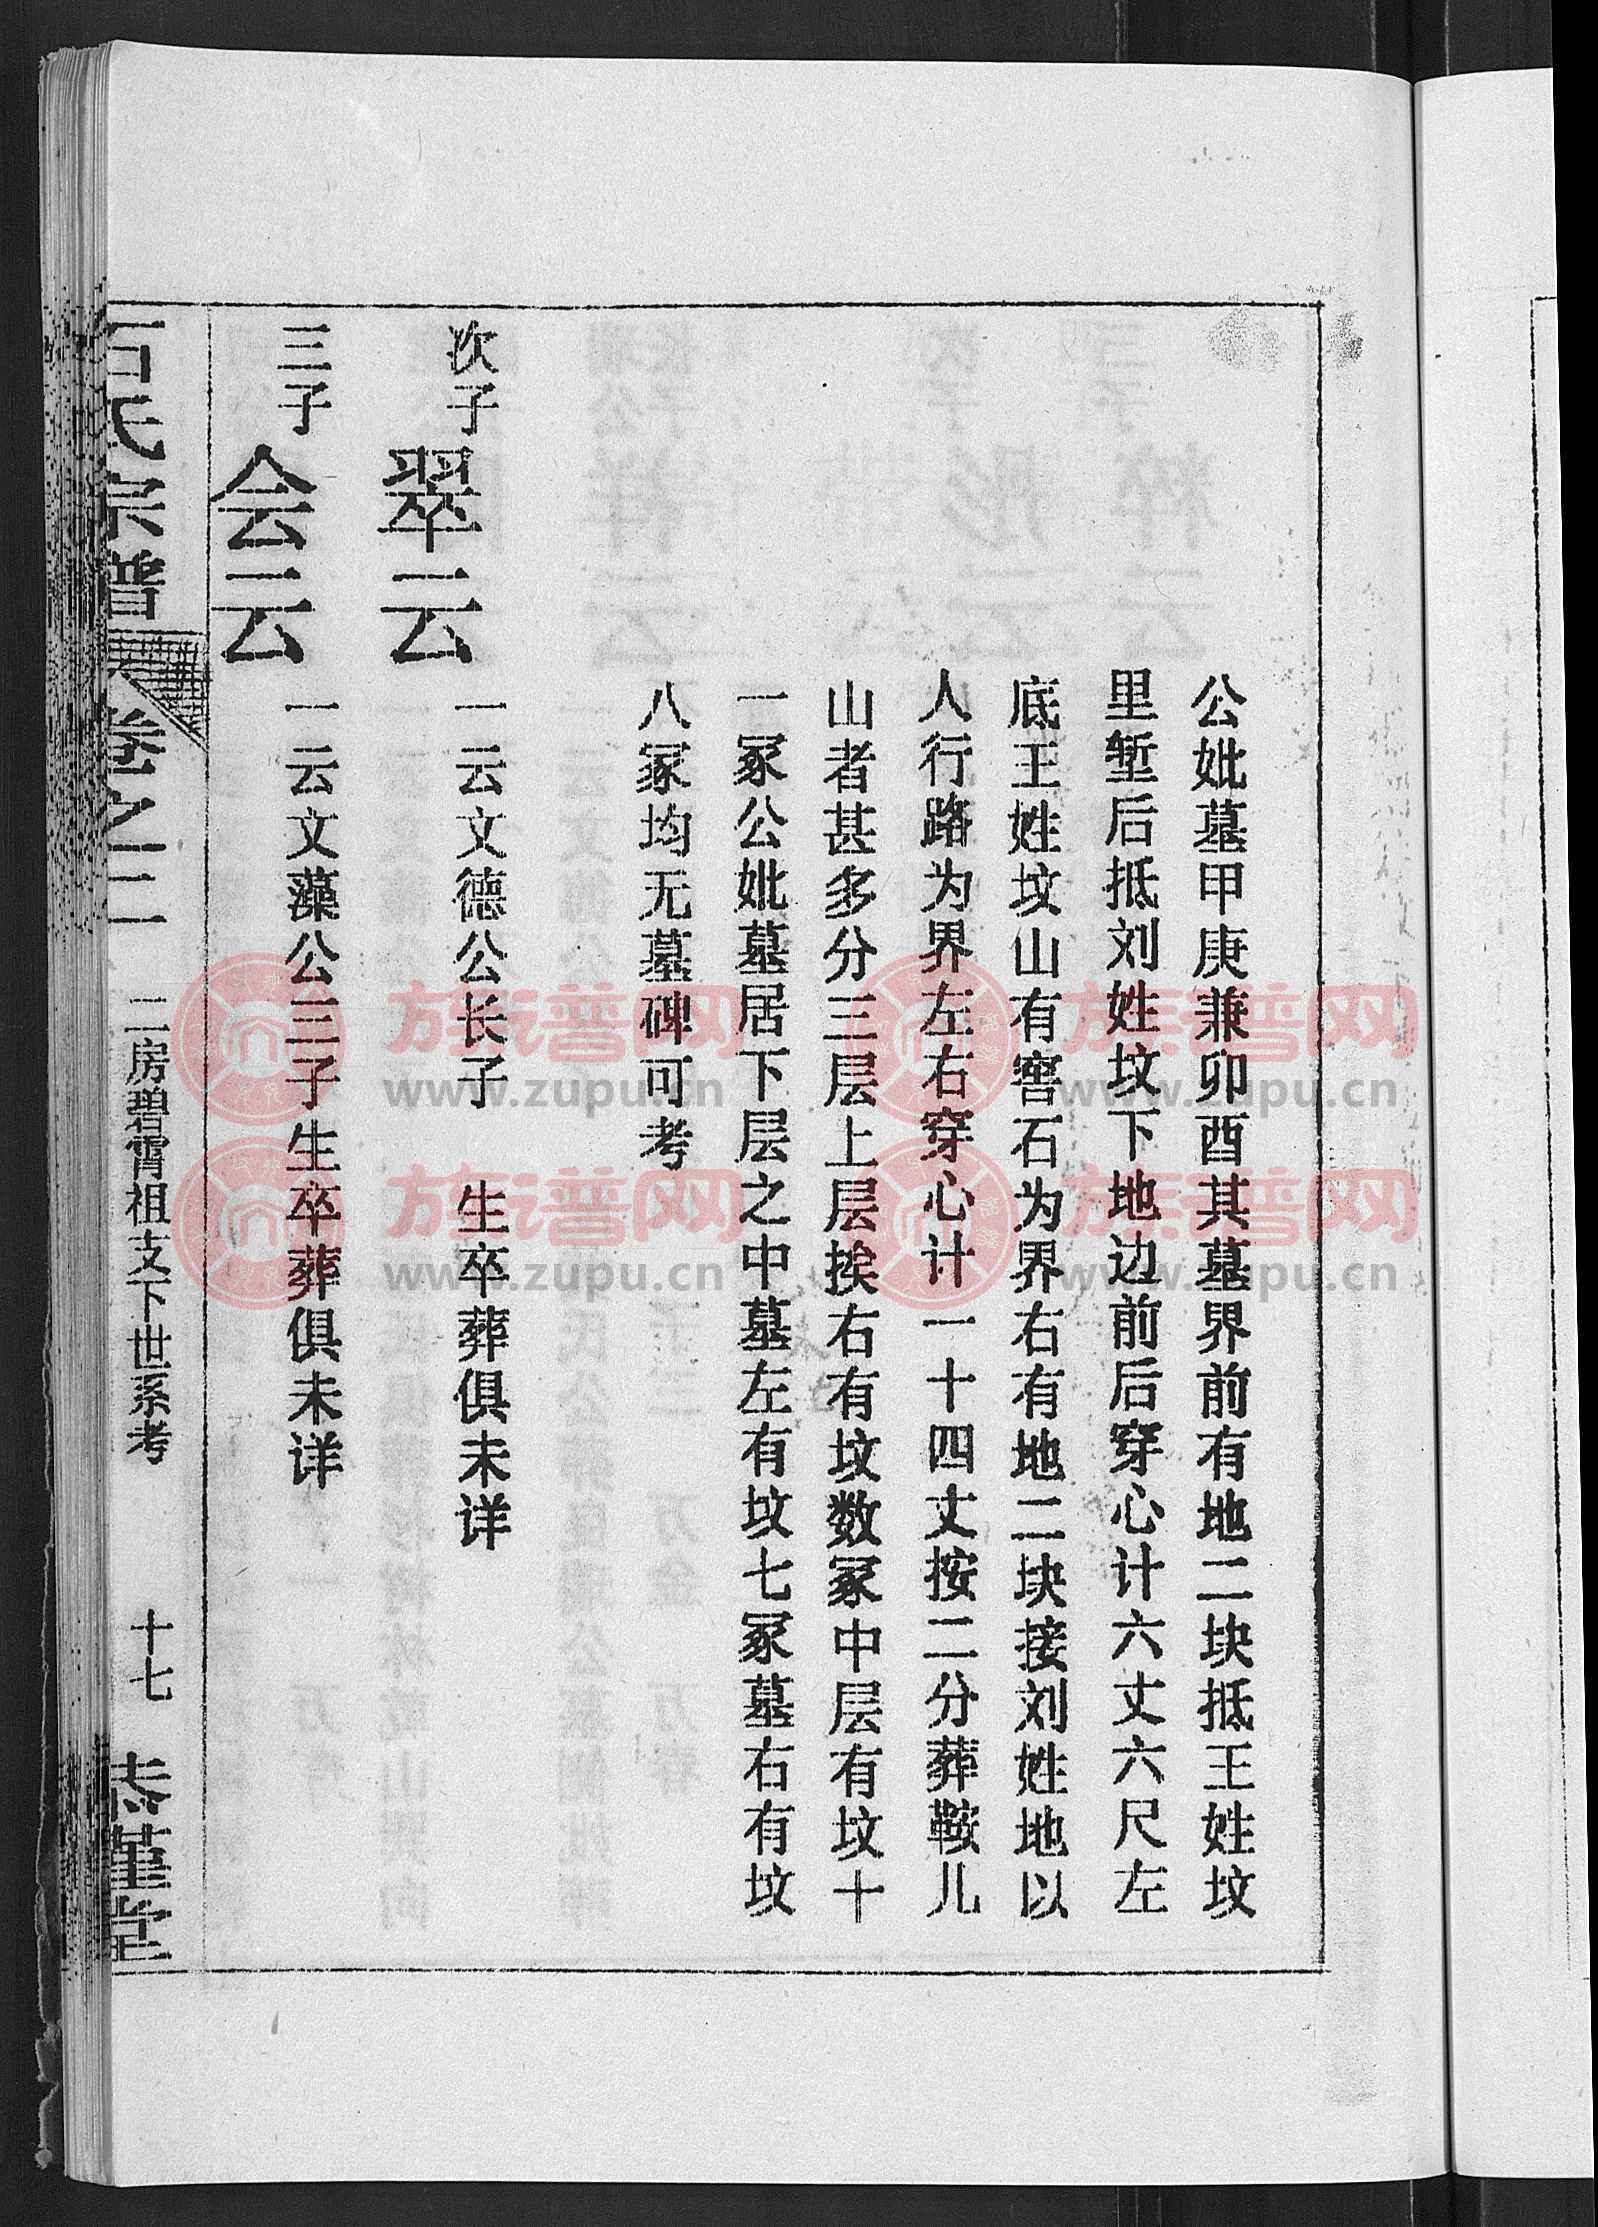 公妣墓甲庚兼卯酉其墓界前有地二块抵王姓坟
里堑后抵刘姓坟下地边前后穿心计六丈六尺左
底王姓坟山有窖石为界右有地二块接刘姓地以
人行路为界左右穿心计一十四丈按二分葬鞍儿
山者甚多分三层上层挨右有坟数冢中层有坟十
一冢公妣墓居下层之中墓左有坟七冢墓右有坟
八冢均无墓碑可考
次子 翠云 一云文德公长子 生卒葬俱未详
三子 会云 一云文藻公三子生卒葬俱未详
石氏宗谱 卷之二 二房碧霄祖支下世系考 十七 堂
族谱网
www.zupu.cn
族谱网
www.zupu.cn
族谱网
www.zupu.cn
族谱网
www.zupu.cn